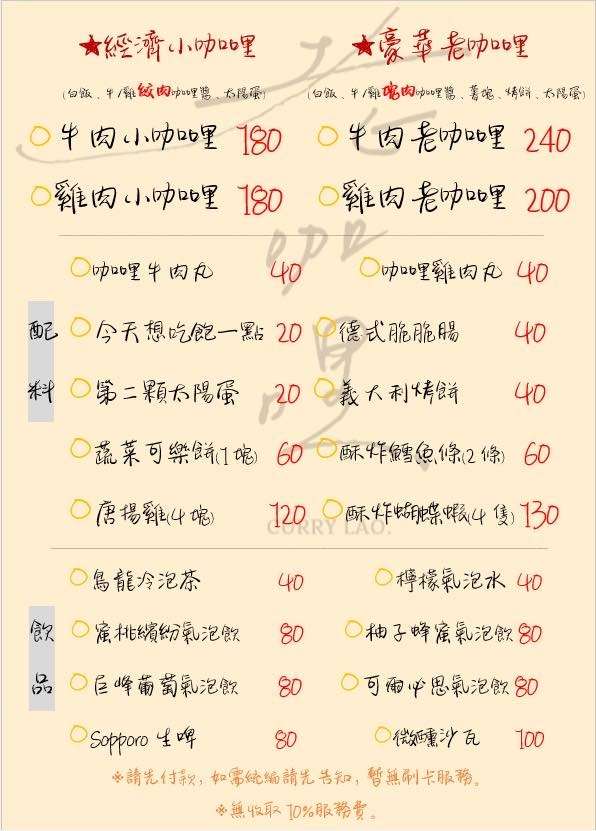 ★經濟小咖哩 ★豪華老咖哩
(白飯、牛/雞絞肉咖哩醬、太陽蛋) (白飯、牛/雞塊肉咖哩醬、薯塊、烤餅、太陽蛋)
牛肉小咖哩 180 牛肉老咖哩 240
雞肉小咖哩 180 雞肉老咖哩 200
老咖哩
CURRY LAO.
配料
咖哩牛肉丸 40 咖哩雞肉丸 40
今天想吃飽一點 20 德式脆脆腸 40
第二顆太陽蛋 20 義大利烤餅 40
蔬菜可樂餅(1塊) 60 酥炸鱈魚條(2條) 60
唐揚雞(4塊) 120 酥炸蝴蝶蝦(4隻) 130
飲品
烏龍冷泡茶 40 檸檬氣泡水 40
蜜桃繽紛氣泡飲 80 柚子蜂蜜氣泡飲 80
巨峰葡萄氣泡飲 80 可爾必思氣泡飲 80
Sopporo 生啤 80 微醺沙瓦 100
※請先付款，如需統編請先告知，暫無刷卡服務。
※無收取10%服務費。